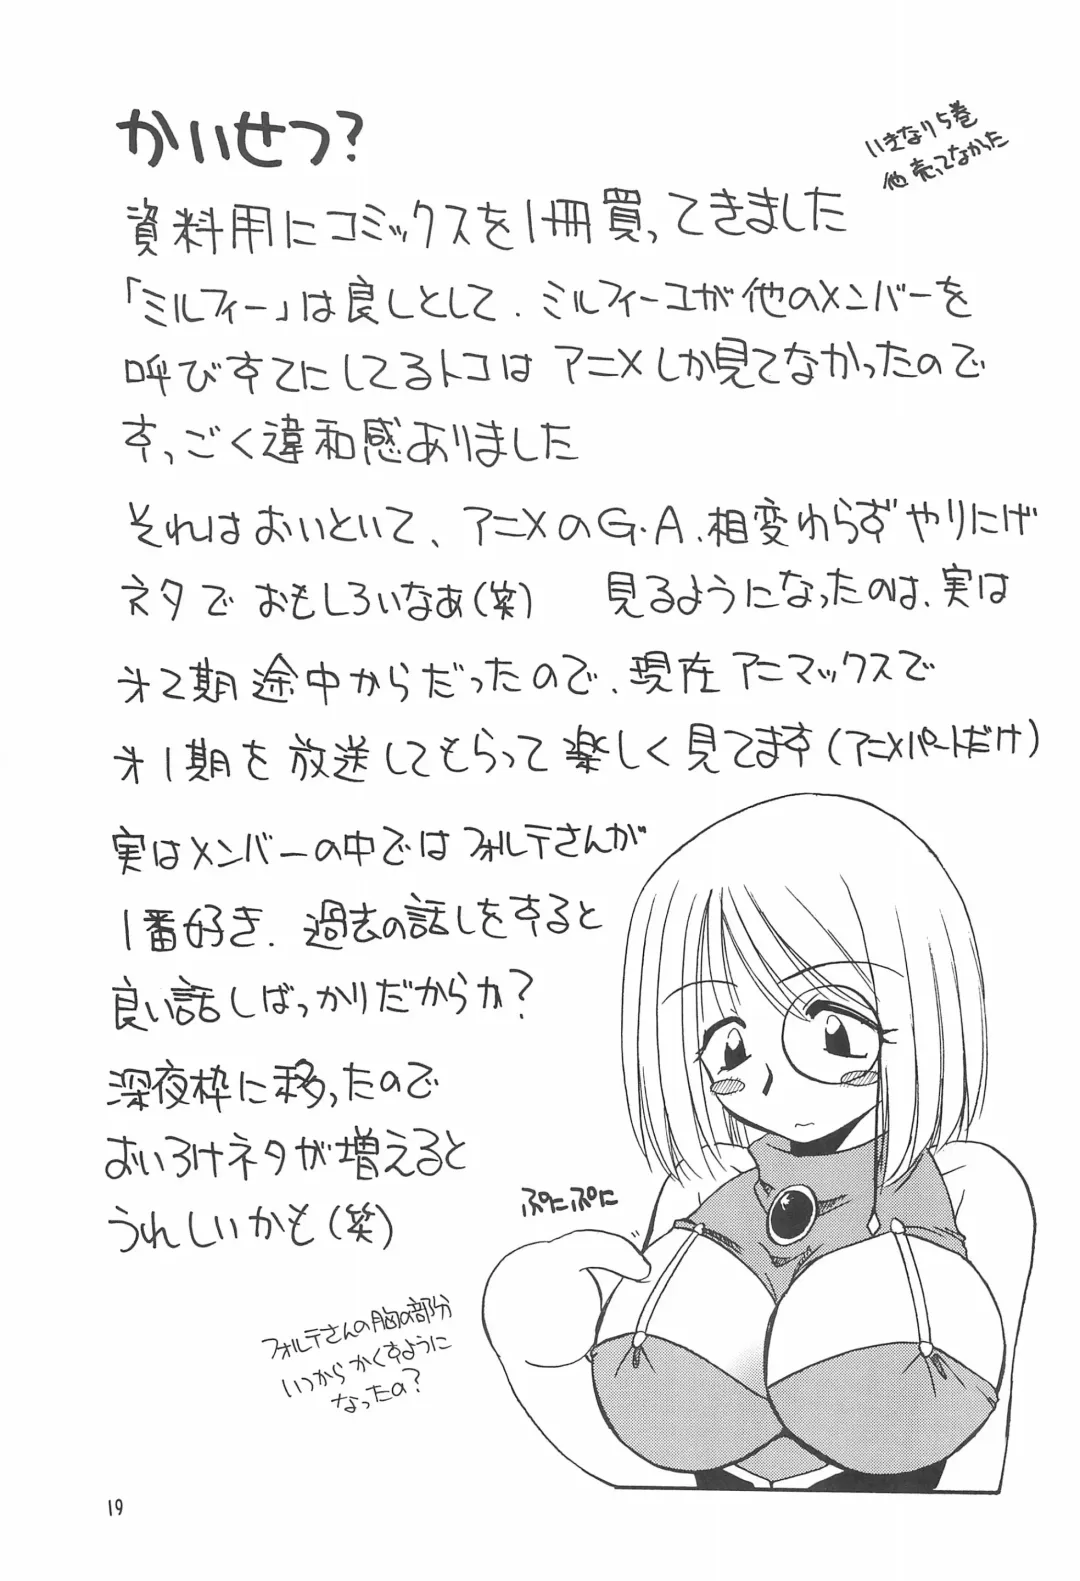 かいせつ?
いきなり5巻
他売ってなかった
資料用にコミックスを1冊買ってきました
「ミルフィー」は良しとして、ミルフィーユが他のメンバーを
呼びすてにしてるトコはアニメしか見てなかったので
すっごく違和感ありました
それはおいといて、アニメのG・A、相変わらずやりにげ
ネタでおもしろいなあ(笑) 見るようになったのは、実は
才2期途中からだったので、現在アニマックスで
才1期を放送してもらって楽しく見てます(アニメパートだけ)
実はメンバーの中ではフォルテさんが
1番好き、過去の話しをすると
良い話しばっかりだからか?
深夜枠に移ったので
おいろけネタが増えると
うれしいかも(笑)
ぷにぷに
フォルテさんの胸の部分
いつからかくすように
なったの?
19